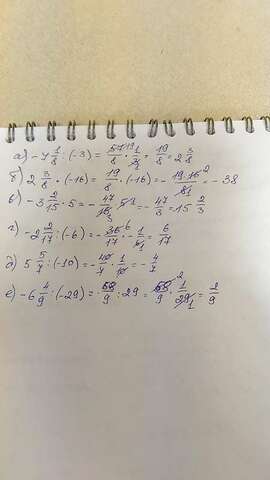 а) -7 1/8 : (-3) = 57/8 19 · 1/3 1 = 19/8 = 2 3/8
б) 2 3/8 · (-16) = 19/8 · (-16) = - 19·16 2/8 1 = -38
в) -3 2/15 · 5 = - 47/15 3 · 5 1 = - 47/3 = 15 2/3
г) -2 2/17 : (-6) = - 36 6/17 · - 1/6 1 = 6/17
д) 5 5/7 : (-10) = - 40/7 · 1/10 = - 4/7
е) -6 4/9 : (-29) = 58/9 : 29 = 58 2/9 · 1/29 1 = 2/9